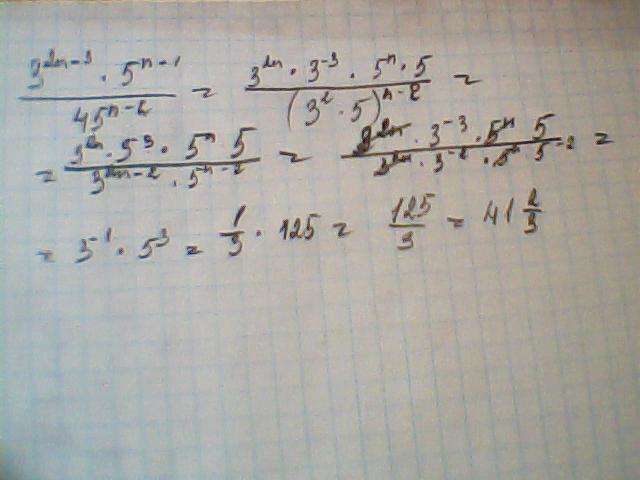 3^{2n-3} · 5^{n-1} / 45^{n-2} = 3^{2n} · 3^{-3} · 5^n · 5 / (3^2 · 5)^{n-2} =
= 3^{2n} · 5^{-3} · 5^n · 5 / 3^{2n-2} · 5^{n-2} = 3^{2n} · 3^{-3} · 5^n · 5 / 3^{2n} · 3^{-2} · 5^n · 5^{-2} =
= 3^{-1} · 5^3 = 1/3 · 125 = 125/3 = 41 2/3